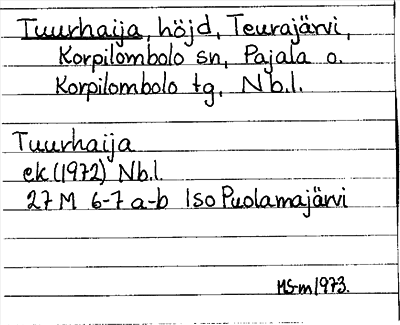 Tuurhaija, höjd, Teurajärvi,
Korpilombolo sn, Pajala o.
Korpilombolo tg, Nb.l.
Tuurhaija
ek. (1972) Nb.l.
27 M 6-7 a-b Iso Puolamajärvi
MS-m 1973.